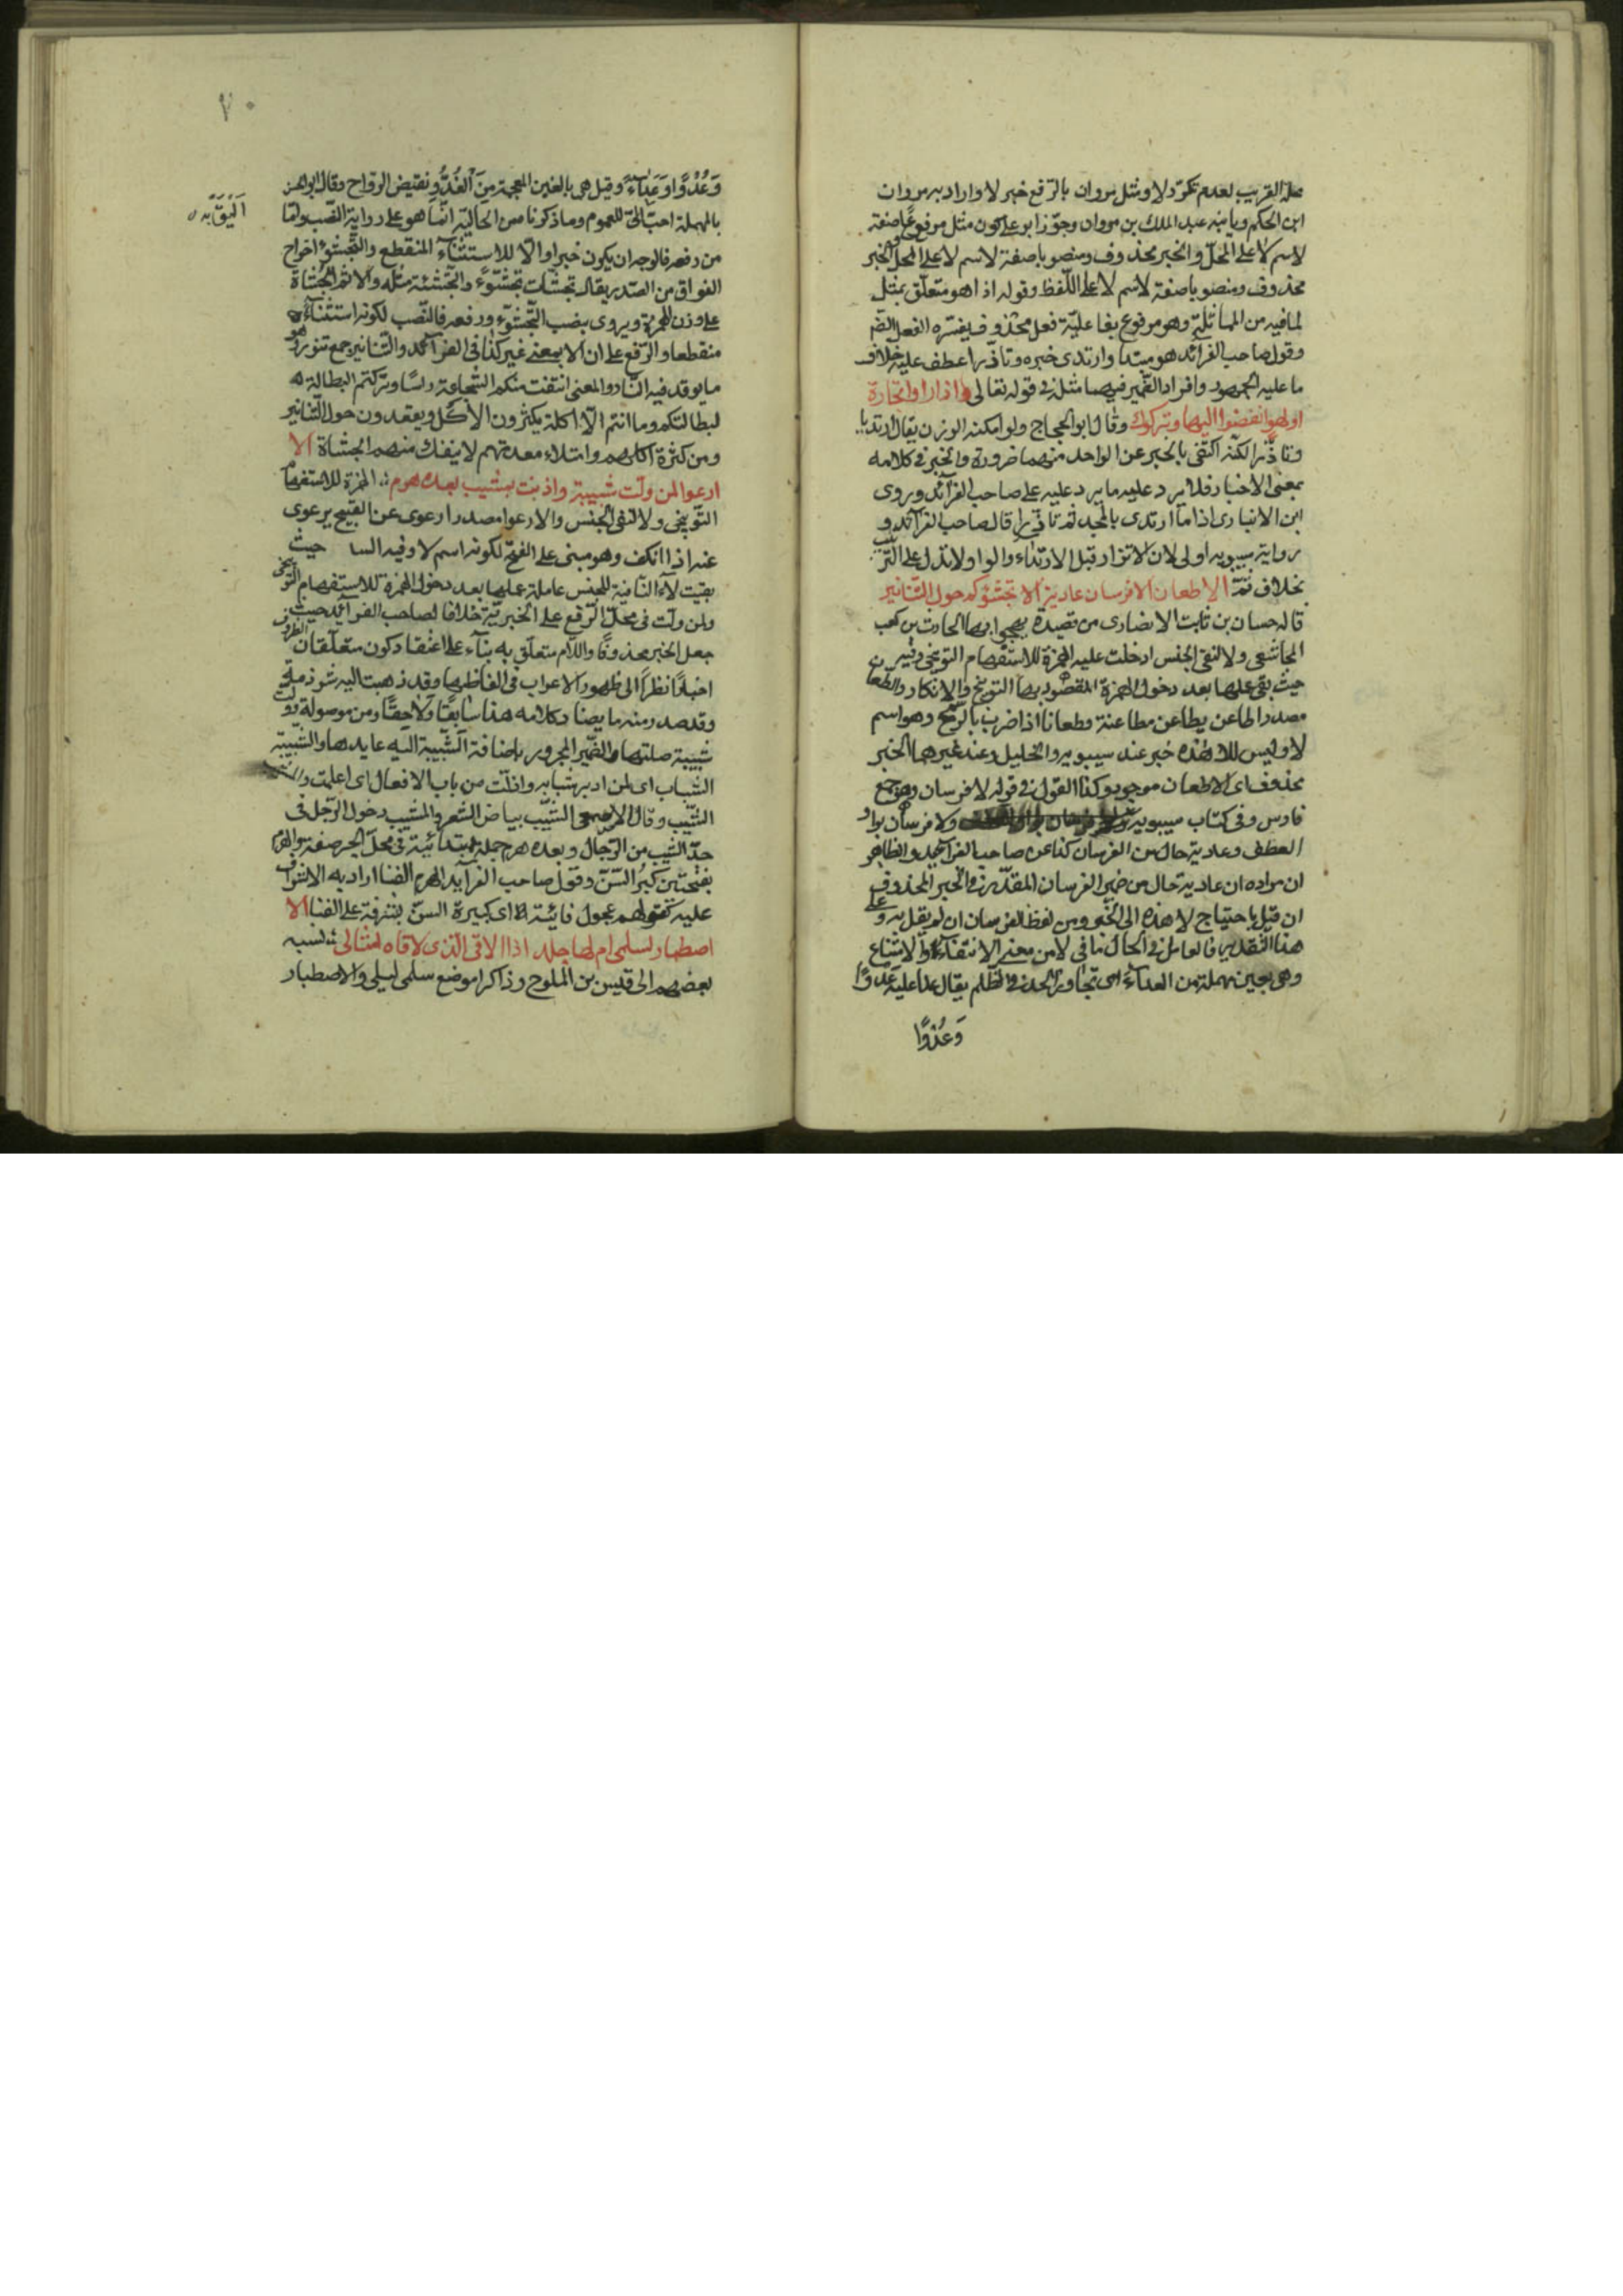 محلة القريب لعدم تكرر لا ومثل مروان بالرفع خبر لا واراد بمروان
ابن الحكم وبابنه عبد الملك بن مروان وجوز ابو على كون مثل مرفوعا صفة
لاسم لا على المحل والخبر محذوف ومنصوبا صفة لاسم لا على المحل والخبر
محذوف ومنصوبا صفة لاسم لا على اللفظ وقوله اذا هو متعلق بمثل
لما فيه من المماثلة وهو مرفوع بفاعلية فعل محذوف يفسره الفعل
وقول صاحب الفرائد هو مبتدا وارتدى خبره وتازرا عطف عليه خلاف
ما عليه الجمهور وافراد الضمير فيهما مثله في قوله تعالى واذا راوا تجارة
او لهوا انفضوا اليها وتركوك وقال ابو الحجاج ولو امكنه الوزن يقال ارتديا
وتازرا لكنه اكتفى بالخبر عن الواحد منهما ضرورة والخبر في كلامه
بمعنى الاخبار فلا يرد عليه ما يرد عليه على صاحب الفرائد وروى
ابن الانبارى اذا ما ارتدى بالمجد ثم تازرا قال صاحب الفرائد و
رواية سيبويه اولى لان الاتزار قبل الارتداء والواو لا تدل على الترتيب
بخلاف ثم الا طعان الا فرسان عادية الا تجشؤكم حول التنانير
قاله حسان بن ثابت الانصارى من قصيدة يهجو بها الحارث بن كعب
المجاشعى ولا لنفى الجنس ادخلت عليه الهمزة للاستفهام التوبيخى
حيث بقى عملها بعد دخول الهمزة المقصود بها التوبيخ والانكار والطعان
مصدر طاعن يطاعن مطاعنة وطعانا اذا ضرب بالرمح وهو اسم
لا وليس للا هذه خبر عند سيبويه والخليل وعند غيرهما الخبر
محذوف اى الا طعان موجود وكذا القول في قوله لا فرسان وهو جمع
فارس وفى كتاب سيبويه ولا فرسان بواو
العطف وعادية حال من الفرسان كذا عن صاحب الفرائد والظاهر
ان مراده ان عادية حال من ضمير الفرسان المقدر في الخبر المحذوف
ان قيل باحتياج لا هذه الى الخبر ومن لفظ الفرسان ان لم يقل به وعلى
هذا التقدير فالعامل في الحال ما في لا من معنى الانتفاء والامتناع
وهى بعين مهملة من العداء اى تجاوز الحد في الظلم يقال عدا عليه عدوا
وعدوا
٧٠
وعدوا وعداء وقيل هى بالغين المعجمة من الغدو نقيض الرواح وقال ابو الحسن
بالمهملة احب الى للعموم وما ذكرنا من الحالية انما هو على رواية النصب ولما
اليق به
من رفعه فالوجه ان يكون خبرا والا للاستثناء المنقطع والتجشؤ اخراج
الفواق من الصدر يقال تجشات تجشؤا والتجشئة مثله والاسم الجشاة
على وزن الهمزة ويروى بنصب التجشؤ ورفعه فالنصب لكونه استثناء
منقطعا والرفع على ان الا بمعنى غير كذا فى الفرائد والتنانير جمع تنور وهو
ما يوقد فيه النار والمعنى انتفت منكم الشجاعة راسا وتركتم البطالة
لبطالتكم وما انتم الا اكلة يكثرون الاكل ويقعدون حول التنانير
ومن كثرة اكلهم وامتلاء معدتهم لا ينفك منهم الجشاة الا
ارعواء لمن ولت شبيبته واذنت بمشيب بعده هرم الهمزة للاستفهام
التوبيخى ولا لنفى الجنس والارعواء مصدر ارعوى عن القبيح يرعوى
عنه اذا انكف وهو مبنى على الفتح لكونه اسم لا وفيه السا حيث
بقيت لا النافية للجنس عاملة عملها بعد دخول الهمزة للاستفهام التوبيخى
ولمن ولت فى محل الرفع على الخبرية خلافا لصاحب الفرائد حيث
جعل الخبر محذوفا واللام متعلق به بناء على اعتقاد كون متعلقات الظروف
اخبارا نظرا الى ظهور الاعراب فى الفاظها وقد ذهبت اليه شرذمة
وقد صدر منه ما يضاد كلامه هذا سابقا ولاحقا ومن موصولة وولت
شبيبة صلتها والضمير المجرور باضافة الشبيبة اليه عايدها والشبيبة
الشباب اى لمن ادبر شبابه واذنت من باب الافعال اى اعلمت والمشيب
الشيب وقال الاصمعى الشيب بياض الشعر والمشيب دخول الرجل فى
حد الشيب من الرجال وبعده هرم جملة ابتدائية فى محل الجر صفته والهرم
بفتحتين كبر السن وقول صاحب الفرائد الهرم الفنا اراد به الاشراف
عليه كقولهم عجول فانية اى كبيرة السن بشرفة على الفنا الا
اصطبار لسلمى ام لها جلد اذا الاقى الذى لاقاه امثالى نسبه
بعضهم الى قيس بن الملوح وذاكرا موضع سلمى ليلى والاصطبار